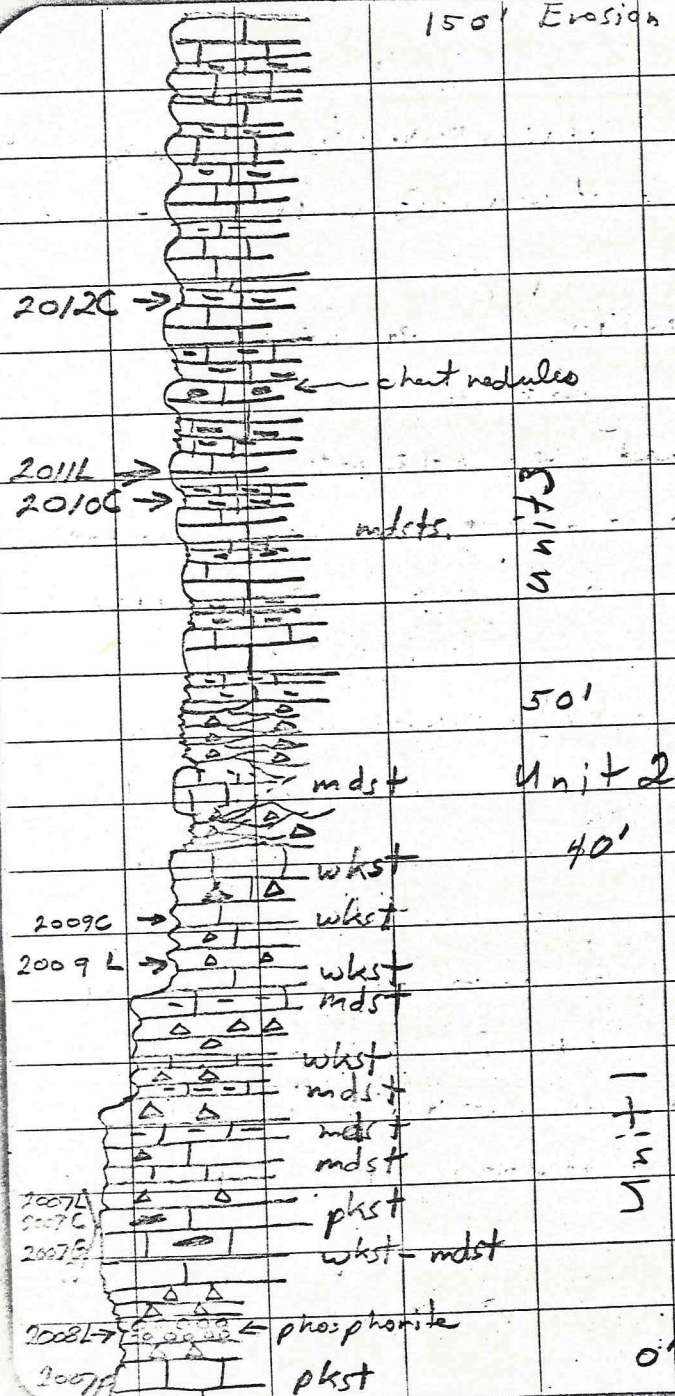 150' Erosion
2012C →
← chert nodules
2011L →
2010C →
mdsts.
Unit 3
50'
mdst
Unit 2
40'
wkst
2009C →
wkst
2009L →
wkst
mdst
wkst
mdst
mdst
mdst
Unit 1
2007L
2007C
pkst
wkst - mdst
2008L →
← phosphorite
0'
pkst